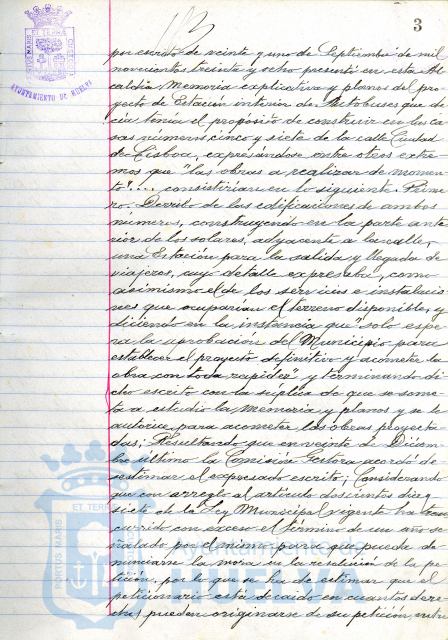 3
AYUNTAMIENTO DE HUELVA
por escrito de veinte y uno de Septiembre de mil
novecientos treinta y ocho presentó en esta Al-
caldía Memoria explicativa y planos del pro-
yecto de Estación interior de Autobuses que de-
cía tenía el propósito de construir en las ca-
sas números cinco y siete de la calle Ciudad
de Lisboa, expresándose entre otros extre-
mos que "las obras a realizar de momen-
to"... consistirían en lo siguiente. Prime-
ro. Derribo de las edificaciones de ambos
números, construyendo en la parte ante-
rior de los solares, adyacente a la calle,
una Estación para la salida y llegada de
viajeros, cuyo detalle expresaba, como
asimismo el de los servicios e instalacio-
nes que ocuparían el terreno disponible, y
diciendo en la instancia que "solo espe-
ra la aprobación del Municipio para
establecer el proyecto definitivo y acometer la
obra con toda rapidez" y terminando di-
cho escrito con la súplica de que se some-
ta a estudio la Memoria y planos y se le
autorice para acometer las obras proyecta-
das; Resultando que en veinte de Diciem-
bre último la Comisión Gestora acordó de-
sestimar el expresado escrito; Considerando
que con arreglo al artículo doscientos diez y
siete de la Ley Municipal vigente ha trans-
currido con exceso el término de un año se-
ñalado por el mismo para que pueda de-
nunciarse la mora en la resolución de la pe-
tición, por lo que se ha de estimar que el
peticionario está decaído en cuantos dere-
chos pueden originarse de su petición, entre
PORTUS MARIS ET TERRAE CUSTODIA
Ayuntamiento de
HUELVA